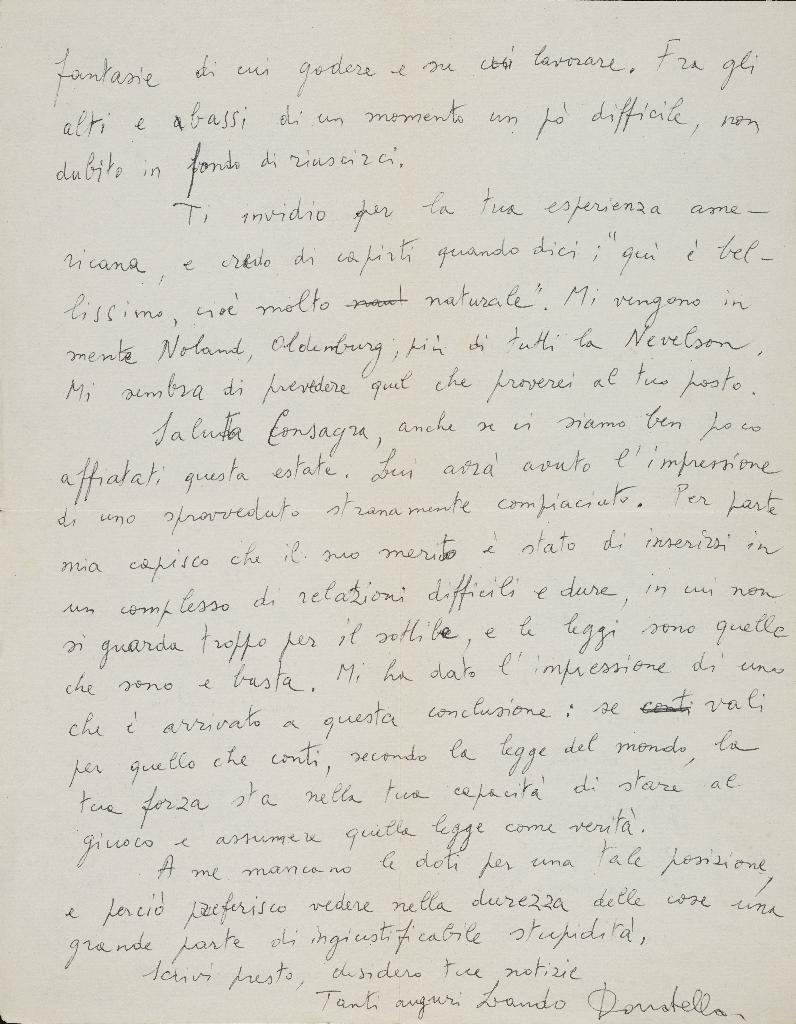 fantasie di cui godere e su cui lavorare. Fra gli
alti e bassi di un momento un pò difficile, non
dubito in fondo di riuscirci.
Ti invidio per la tua esperienza ame-
ricana, e credo di capirti quando dici; "quì è bel-
lissimo, cioè molto naturale". Mi vengono in
mente Noland, Oldenburg, più di tutti la Nevelson.
Mi sembra di prevedere quel che proverei al tuo posto.
Saluta Consagra, anche se ci siamo ben poco
affiatati questa estate. Lui avrà avuto l'impressione
di uno sprovveduto stranamente compiaciuto. Per parte
mia capisco che il suo merito è stato di inserirsi in
un complesso di relazioni difficili e dure, in cui non
si guarda troppo per il sottile, e le leggi sono quelle
che sono e basta. Mi ha dato l'impressione di uno
che è arrivato a questa conclusione: se conti vali
per quello che conti, secondo la legge del mondo, la
tua forza sta nella tua capacità di stare al
giuoco e assumere quella legge come verità.
A me mancano le doti per una tale posizione,
e perciò preferisco vedere nella durezza delle cose una
grande parte di ingiustificabile stupidità.
Scrivi presto, desidero tue notizie
Tanti auguri Lando Donatella